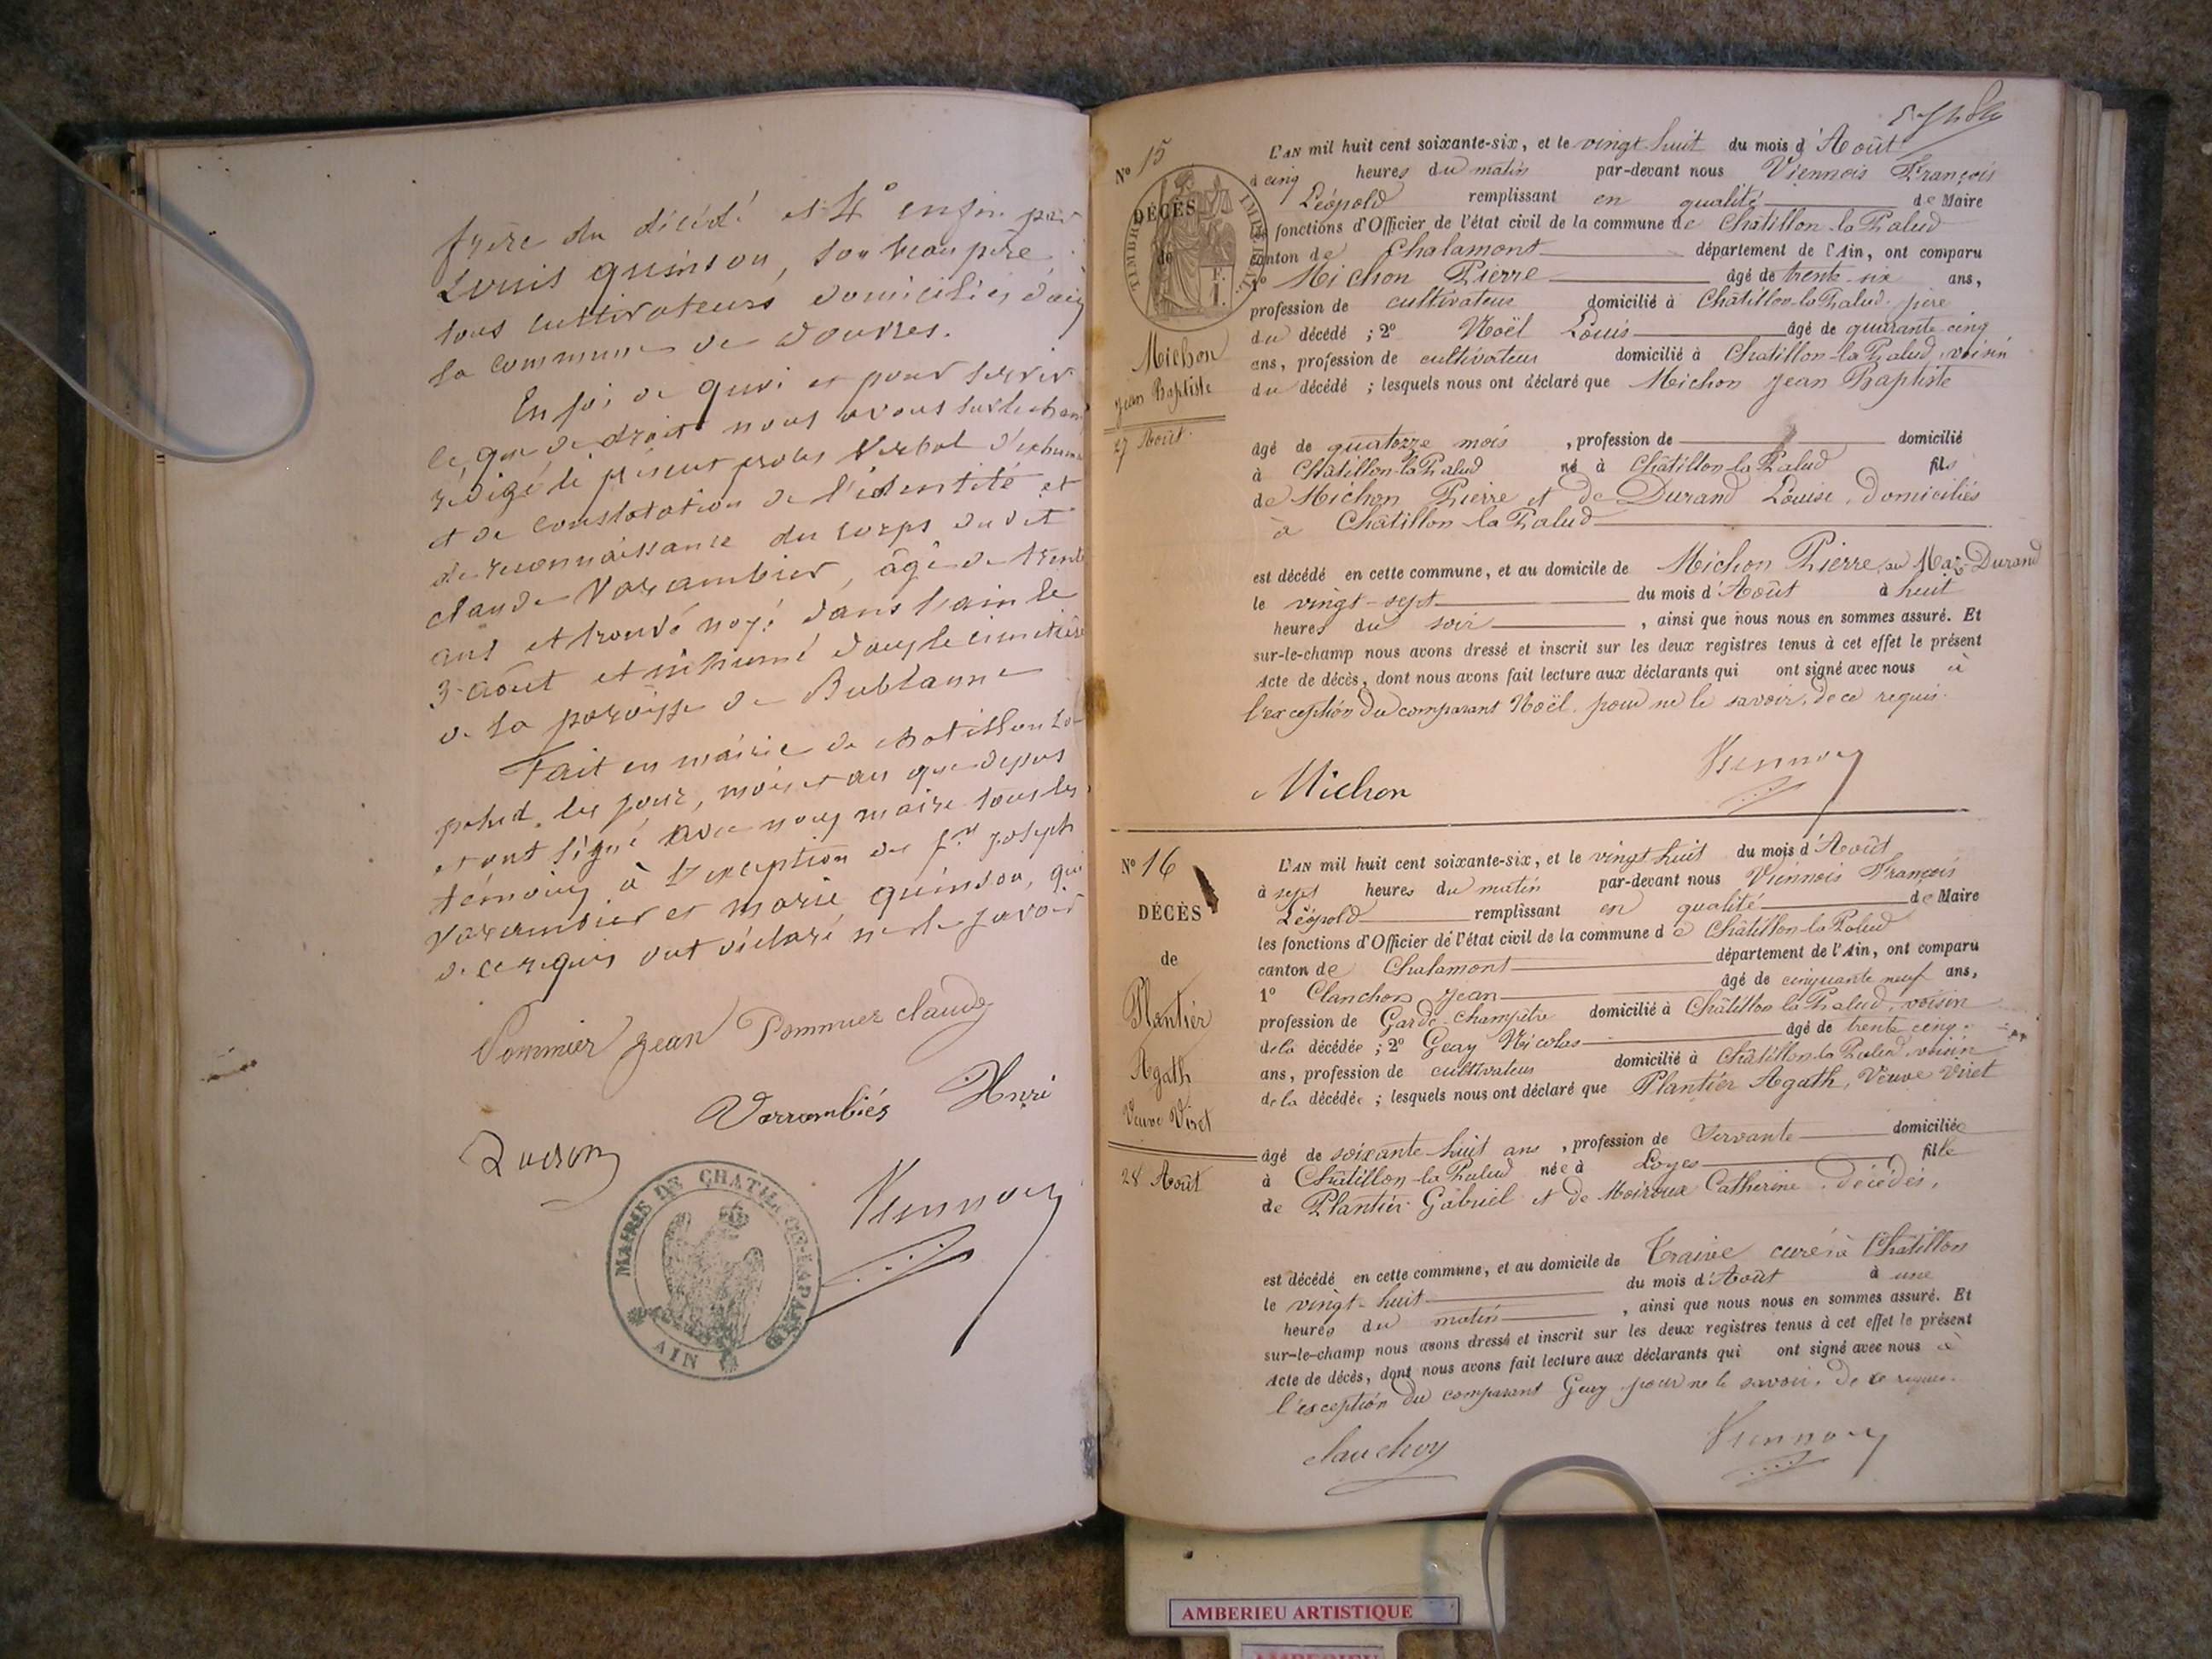 frère du décédé et 4° enfin par
Louis quinson, son beau père
tous cultivateurs domiciliés dans
la commune de Douvres.
En foi de quoi et pour servir
ce que de droit nous avons sur le cham
rédigé le présent procès verbal d'exhum
et de constatation de l'identité et
de reconnaissance du corps dudit
claude Varambier, âgé de trente
ans et trouvé noyé dans l'ain le
3 août et inhumé dans le cimetière
de la paroisse de Bublanne
Fait en mairie de chatillon la
palud, les jour, mois et an que dessus
et ont signé avec nous maire tous les
témoins à l'exception de joseph
Varambier et marie quinson, qui
de ce requis ont déclaré ne le savoir
Pommier jean Pommier claude
Varrambiés Henri
Viennois
MAIRIE DE CHATILLON-LA-PALUD
AIN
N° 15
TIMBRE IMPERIAL
DÉCÈS
de
Michon
Jean Baptiste
27 Août.
L'AN mil huit cent soixante-six, et le vingt huit du mois d'Août
à cinq heures du matin par-devant nous Viennois François
Léopold remplissant en qualité de Maire
les fonctions d'Officier de l'état civil de la commune de Châtillon-la-Palud
canton de Chalamont département de l'Ain, ont comparu
1° Michon Pierre âgé de trente-six ans,
profession de cultivateur domicilié à Châtillon-la-Palud père
du décédé ; 2° Noël Louis âgé de quarante-cinq
ans, profession de cultivateur domicilié à Chatillon-la-Palud, voisin
du décédé ; lesquels nous ont déclaré que Michon Jean Baptiste
âgé de quatorze mois , profession de domicilié
à Châtillon-la-Palud né à Châtillon-la-Palud fils
de Michon Pierre et de Durand Louise, domiciliés
à Châtillon-la-Palud
est décédé en cette commune, et au domicile de Michon Pierre, au Mas Durand
le vingt-sept du mois d'Août à huit
heures du soir , ainsi que nous nous en sommes assuré. Et
sur-le-champ nous avons dressé et inscrit sur les deux registres tenus à cet effet le présent
Acte de décès, dont nous avons fait lecture aux déclarants qui ont signé avec nous à
l'exception du comparant Noël, pour ne le savoir, de ce requis.
Michon Viennois
N° 16
DÉCÈS
de
Plantier
Agath
Veuve Viret
28 Août
L'AN mil huit cent soixante-six, et le vingt huit du mois d'Août
à sept heures du matin par-devant nous Viennois François
Léopold remplissant en qualité de Maire
les fonctions d'Officier de l'état civil de la commune de Châtillon-la-Palud
canton de Chalamont département de l'Ain, ont comparu
1° Clanchon Jean âgé de cinquante neuf ans,
profession de Garde-champêtre domicilié à Châtillon la Palud, voisin
de la décédée ; 2° Geay Nicolas âgé de trente cinq
ans, profession de cultivateur domicilié à Châtillon-la Palud, voisin
de la décédée ; lesquels nous ont déclaré que Plantier Agath, Veuve Viret
âgé de soixante-huit ans , profession de Servante domiciliée
à Châtillon-la-Palud née à Loyes fille
de Plantier Gabriel et de Moiroux Catherine, décédés,
est décédé en cette commune, et au domicile de Traive curé à Châtillon
le vingt-huit du mois d'Août à une
heures du matin , ainsi que nous nous en sommes assuré. Et
sur-le-champ nous avons dressé et inscrit sur les deux registres tenus à cet effet le présent
Acte de décès, dont nous avons fait lecture aux déclarants qui ont signé avec nous à
l'exception du comparant Geay pour ne le savoir, de ce requis.
Clanchon Viennois
AMBERIEU ARTISTIQUE
AMBERIEU